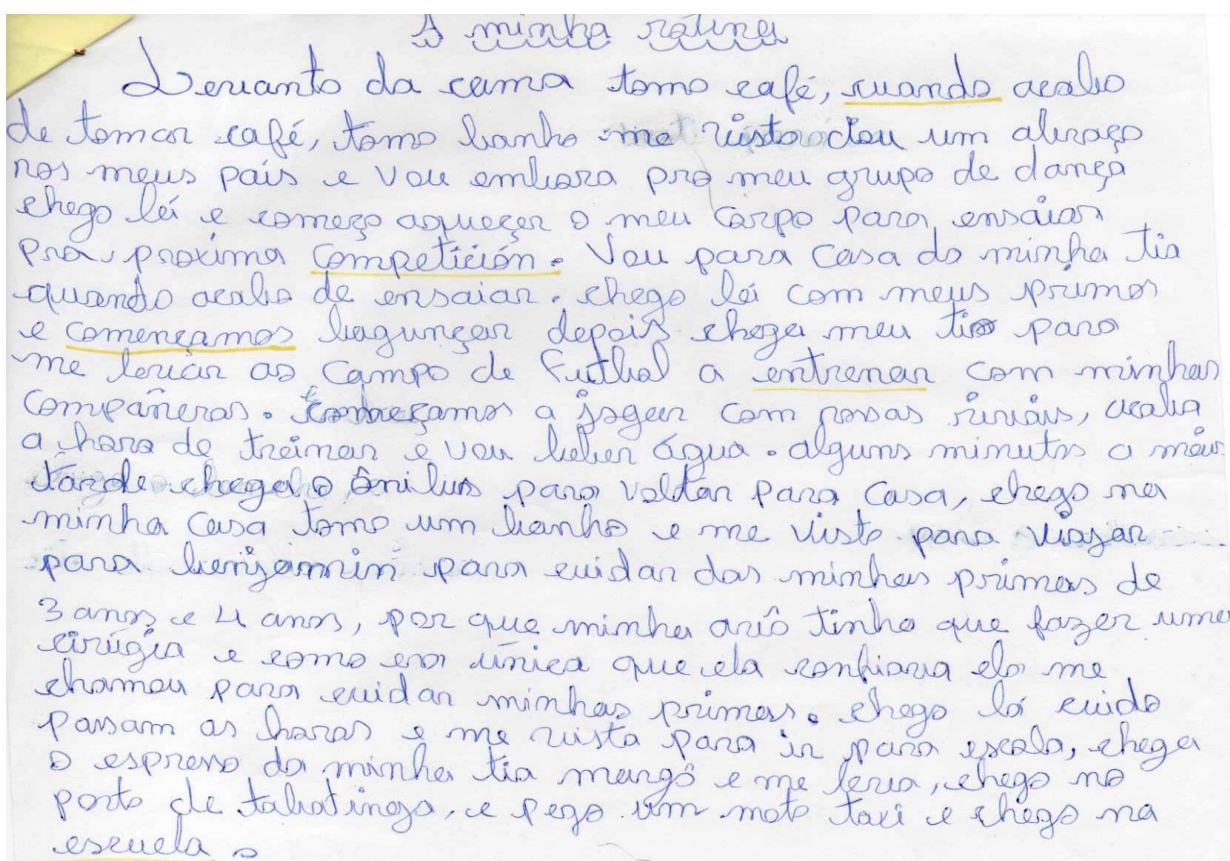 A minha rotina
Levanto da cama tomo café, cuando acabo
de tomar café, tomo banho me visto dou um abraço
nos meus país e vou embora pro meu grupo de dança
chego lá e começo aqueçer o meu corpo para ensaiar
pra próxima competición. Vou para casa da minha tia
quando acabo de ensaiar. chego lá com meus primos
e començamos bagunçar depois chega meu tio para
me levar ao campo de Futbol a entrenar com minhas
compañeras. começamos a jogar com nossas rivais, acaba
a hora de treinar e vou beber água. alguns minutos a mais
tarde chega o ônibus para voltar para casa, chego na
minha casa tomo um banho e me visto para viajar
para benjamin para cuidar das minhas primas de
3 anos e 4 anos, por que minha avó tinha que fazer uma
cirúgia e como era única que ela confiava ela me
chamou para cuidar minhas primas. chego lá cuido
passam as horas e me visto para ir para escola, chega
o espreso da minha tia margô e me leva, chego no
porto de tabatinga, e pego um moto taxi e chego na
escuela.